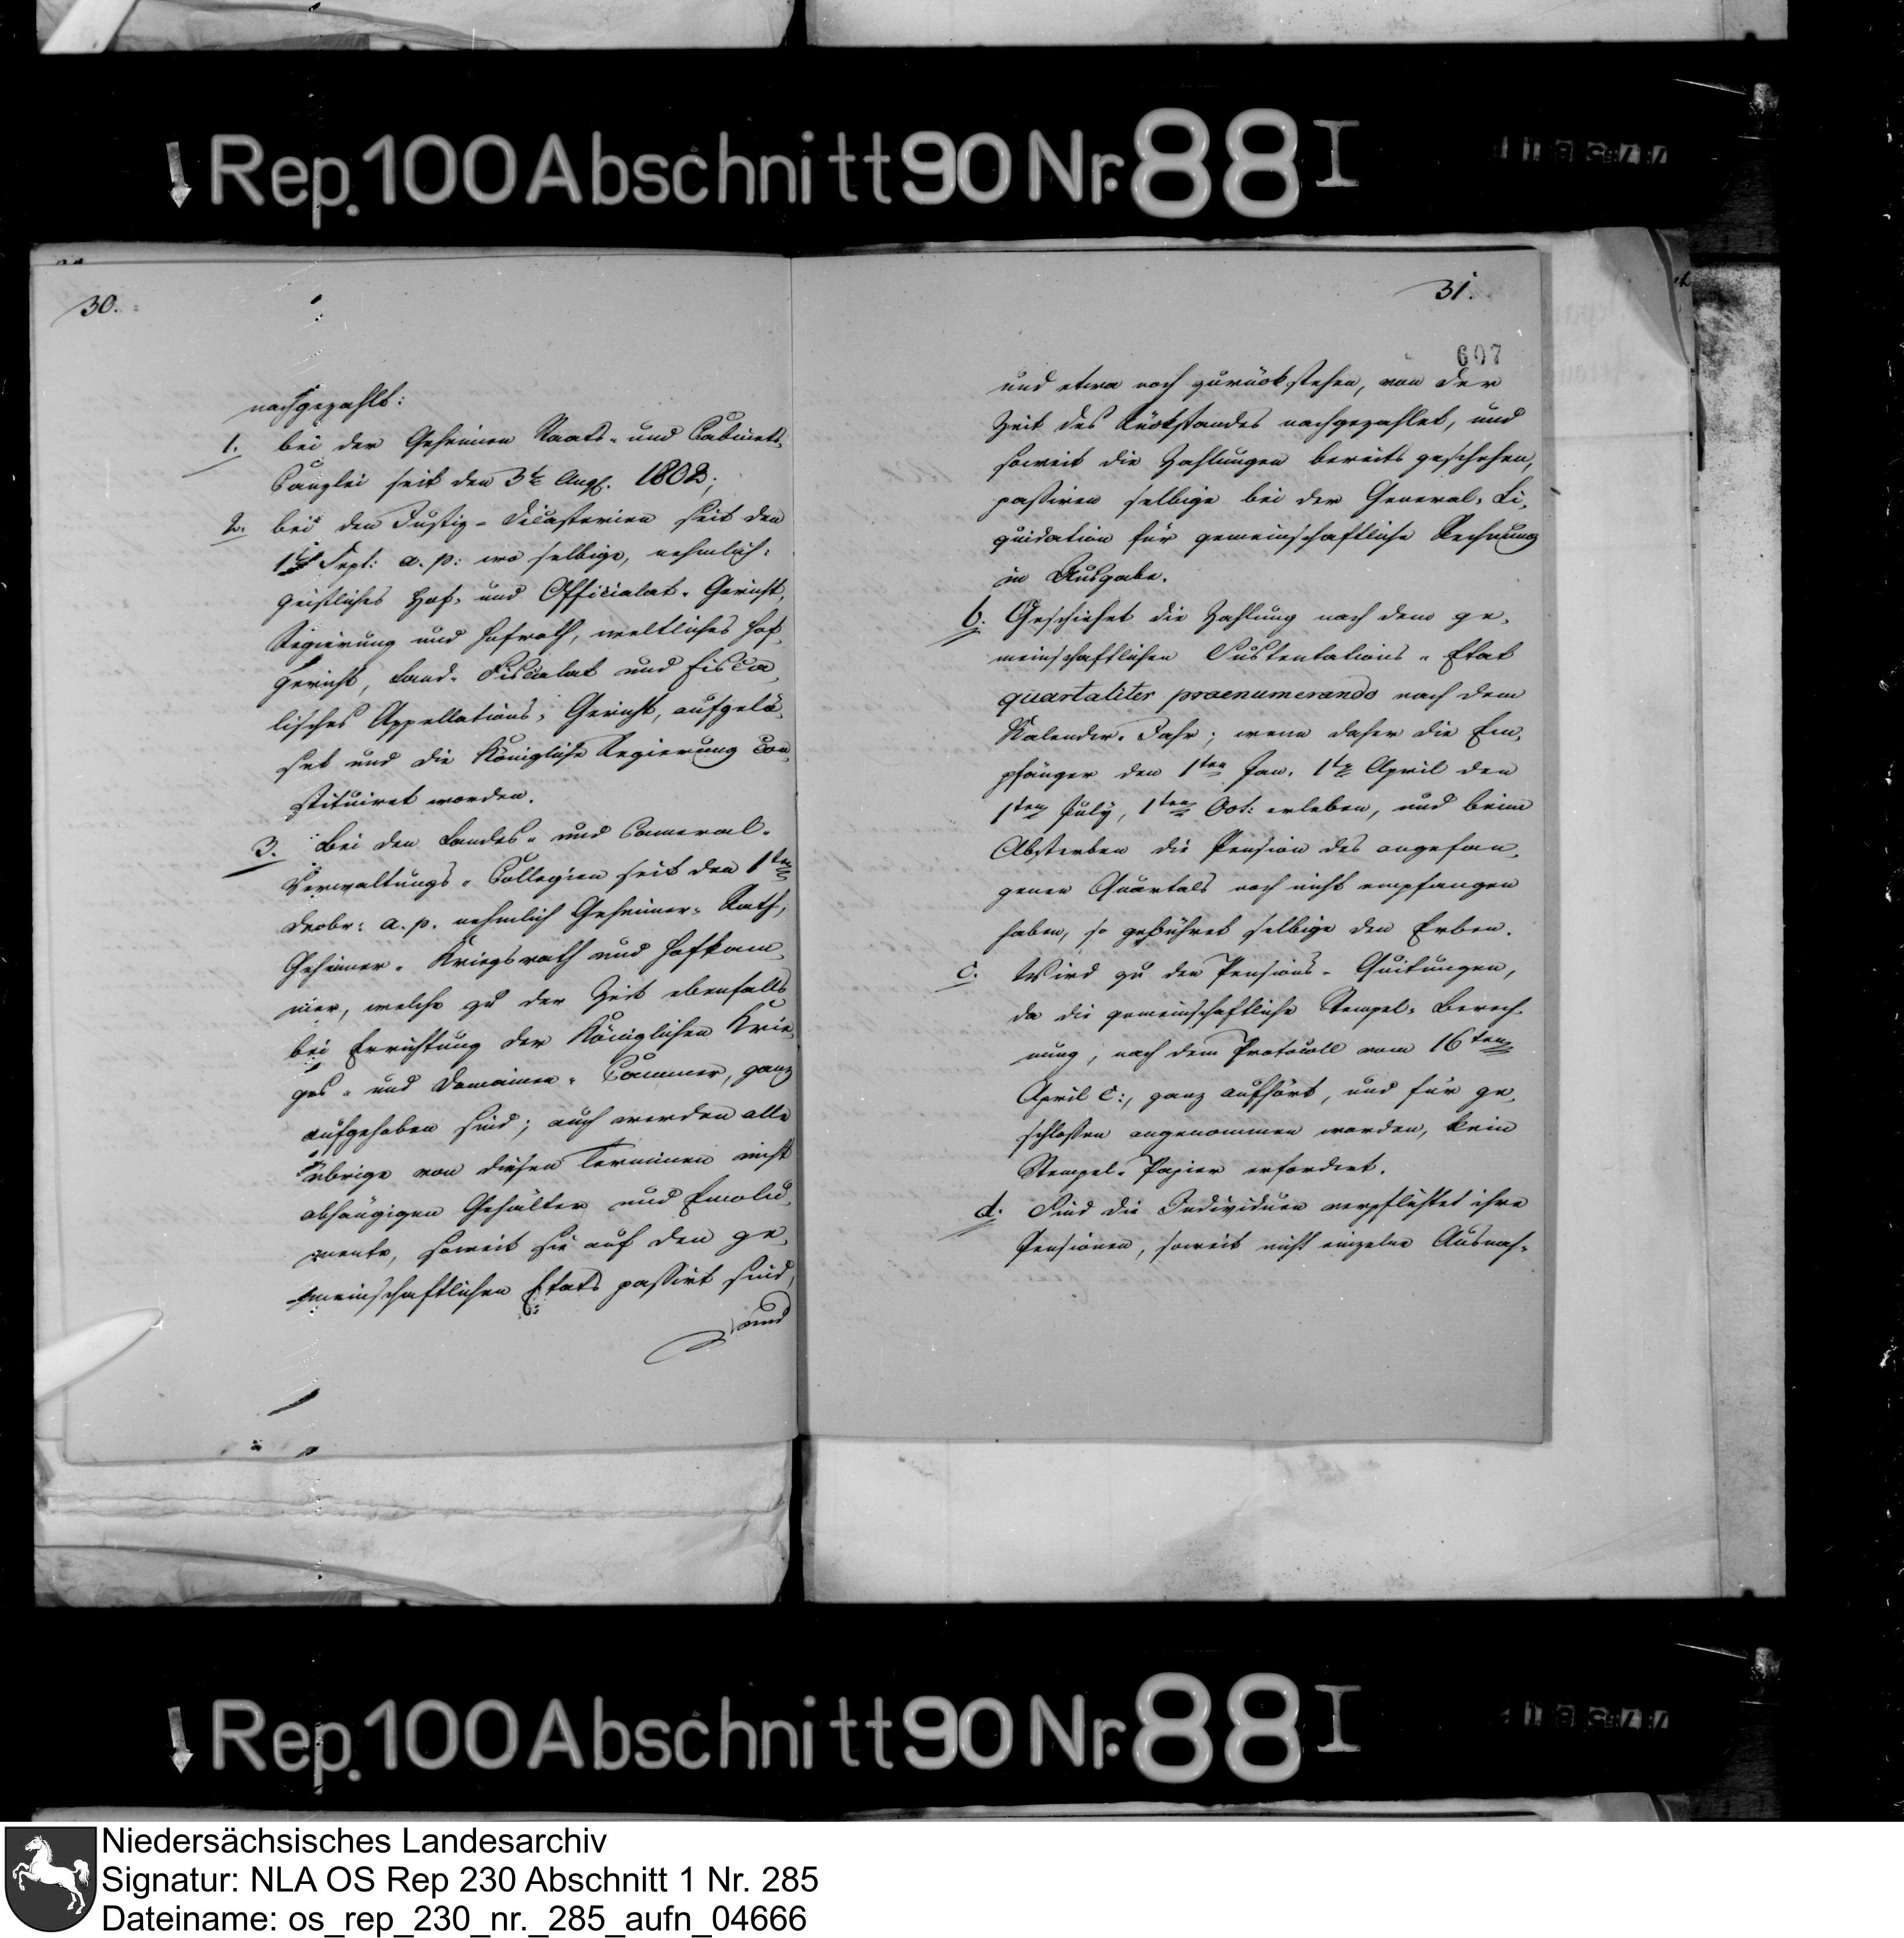 Rep. 100 Abschnitt 90 Nr. 88 I
30.
nachgezahlt:
1. bei der Geheimen Staats- und Cabinets-
Canzlei seit den 3t Aug. 1802;
2. bei den Justiz-Dicasterien seit den
1t Sept: a. p: wo selbige, nehmlich:
geistliches Hof- und Officialat-Gericht,
Regierung und Hofrath, weltliches Hof-
gericht, Land-Fiscalat und fisca-
lisches Appellations-Gericht, aufgelö-
set und die Königliche Regierung con-
stituiret worden.
3. Bei den Landes- und Cameral-
Verwaltungs-Collegien seit den 1ten
Decbr: a. p. nehmlich Geheimer-Rath,
Geheimer-Kriegsrath und Hofkam-
mer, welche zu der Zeit ebenfalls
bei Errichtung der Königlichen Krie-
ges- und Domainen-Cammer, ganz
aufgehoben sind; auch werden alle
übrige von diesen Terminen nicht
abhängigen Gehälter und Emolu-
mente, soweit sie auf den ge-
meinschaftlichen Etats passirt sind,
und
31.
607
und etwa noch zurückstehen, von der
Zeit des Rückstandes nachgezahlet, und
soweit die Zahlungen bereits geschehen,
passiren selbige bei der General-Li-
quidation für gemeinschaftliche Rechnung
in Ausgabe.
b. Geschiehet die Zahlung nach dem ge-
meinschaftlichen Sustentations-Etat
quartaliter praenumerando nach dem
Kalender-Jahr; wenn daher die Em-
pfänger den 1ten Jan. 1ten April den
1ten July, 1ten Oct: erleben, und beim
Absterben die Pension des angefan-
genen Quartals noch nicht empfangen
haben, so gebühret selbige den Erben.
c. Wird zu den Pensions-Quitungen,
da die gemeinschaftliche Stempel-Berech-
nung, nach dem Protocoll vom 16ten
April c:, ganz aufhört, und für ge-
schlossen angenommen worden, kein
Stempel-Papier erfordert.
d. Sind die Individuen verpflichtet ihre
Pensionen, soweit nicht einzelne Ausnah-
Rep. 100 Abschnitt 90 Nr. 88 I
Niedersächsisches Landesarchiv
Signatur: NLA OS Rep 230 Abschnitt 1 Nr. 285
Dateiname: os_rep_230_nr._285_aufn_04666